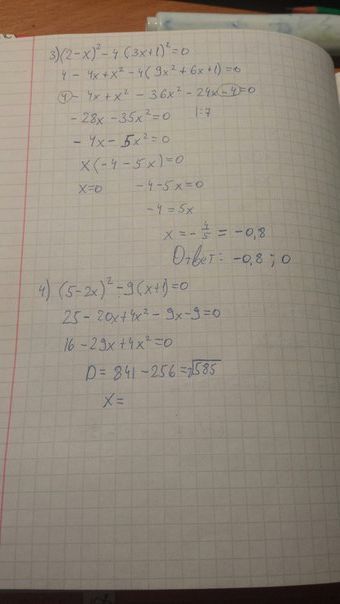 3) (2-x)² - 4 (3x+1)² = 0
4 - 4x + x² - 4( 9x² + 6x + 1) = 0
4 - 4x + x² - 36x² - 24x - 4 = 0
- 28x - 35x² = 0 |:7
- 4x - 5x² = 0
x (-4 - 5x) = 0
x=0 -4-5x=0
-4 = 5x
x = - 4/5 = -0,8
Ответ: -0,8 ; 0
4) (5-2x)² - 9(x+1) = 0
25 - 20x + 4x² - 9x - 9 = 0
16 - 29x + 4x² = 0
D = 841 - 256 = √585
x =